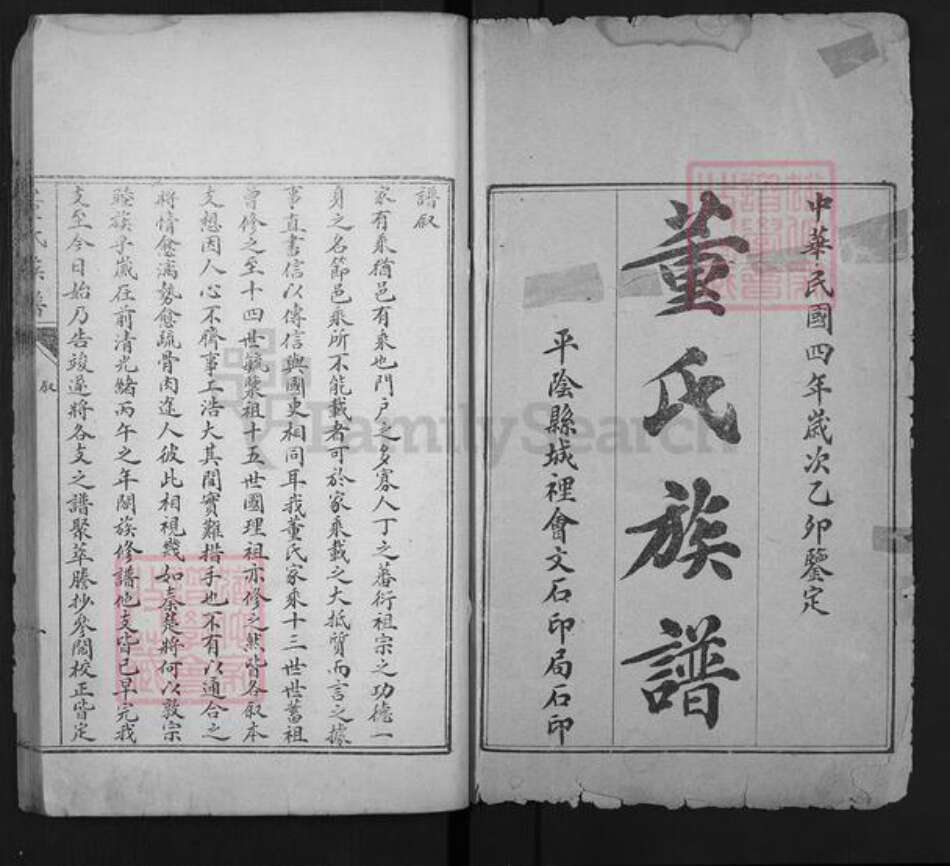 中華民國四年歲次乙卯鑒定
董氏族譜
平陰縣城裡會文石印局石印
譜叙
家有乘猶邑有乘也門戶之多寡人丁之蕃衍祖宗之功德一
身之名節邑乘所不能載者可於家乘載之大抵質而言之據
事直書信以傳信與國史相同耳我董氏家乘十三世世蓄祖
曾修之至十四世毓 祖十五世國理祖亦修之然皆各叙本
支想因人心不齊事工浩大其間實難措手也不有以通合之
將情愈漓勢愈疏骨肉途人彼此相視幾如秦楚將何以敦宗
睦族乎歲在前清光緒丙午之年闔族修譜他支皆已早完我
支至今日始乃告竣遂將各支之譜聚萃謄抄參閱校正皆定
氏族譜
叙
一
FamilySearch